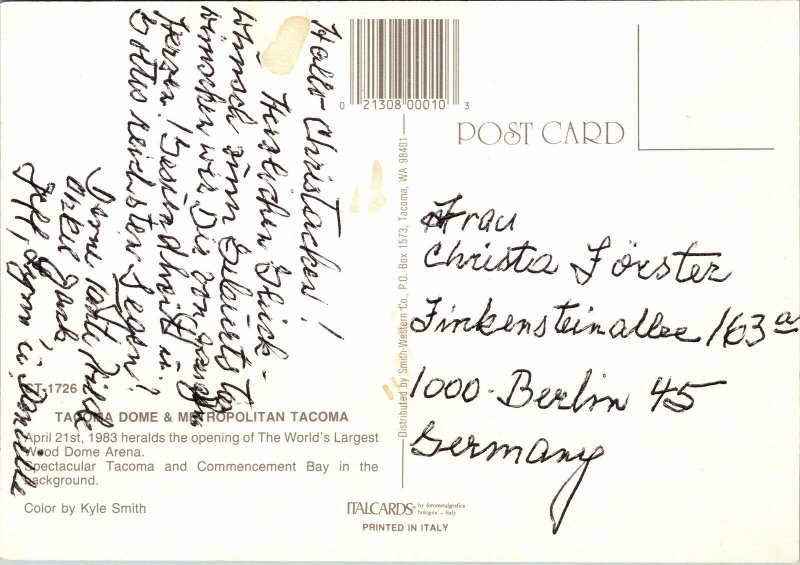 Hallo Christachen!
Herzlichen Glück-
wunsch zum Geburtstag
wünschen wir Dir von ganzem
Herzen! Gesundheit u.
Gottes reichsten Segen!
Deine
Onkel
Jeff, Lynn u. Danielle
0 21308 00010 3
POST CARD
Frau
Christa Förster
Finkensteinallee 163a
1000 Berlin 45
Germany
Distributed by Smith-Western Co., P.O. Box 1573, Tacoma, WA 98401
CT-1726
TACOMA DOME & METROPOLITAN TACOMA
April 21st, 1983 heralds the opening of The World's Largest
Wood Dome Arena.
Spectacular Tacoma and Commencement Bay in the
background.
Color by Kyle Smith
ITALCARDS by fotometalgrafica
bologna - italy
PRINTED IN ITALY